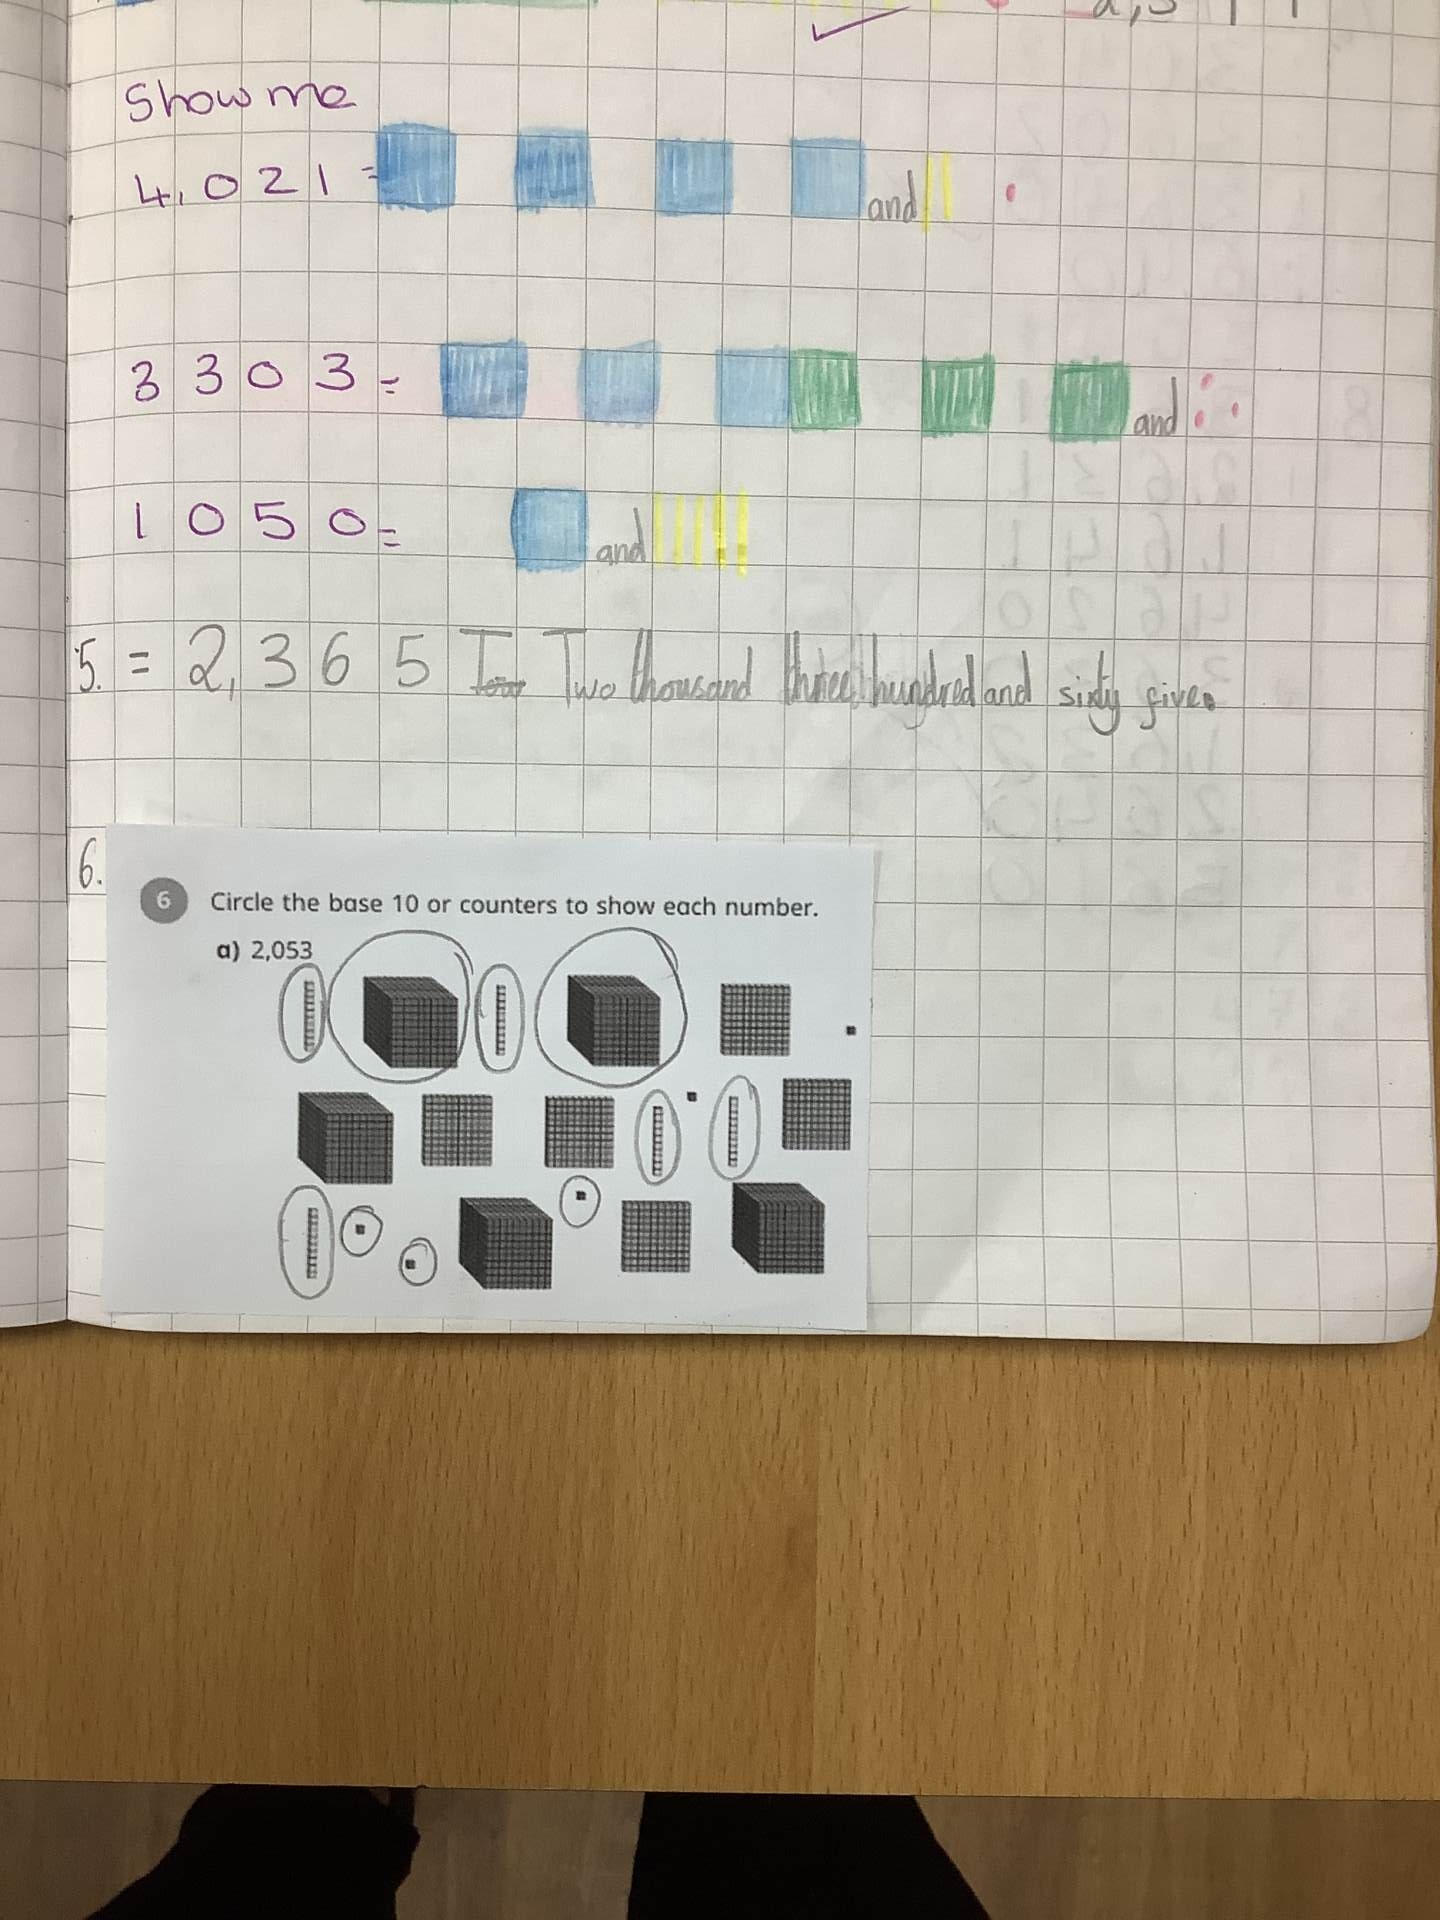 Show me
4,021 = and
3303 = and
1050 = and
5. = 2,365 Two thousand three hundred and sixty five.
6.
6 Circle the base 10 or counters to show each number.
a) 2,053